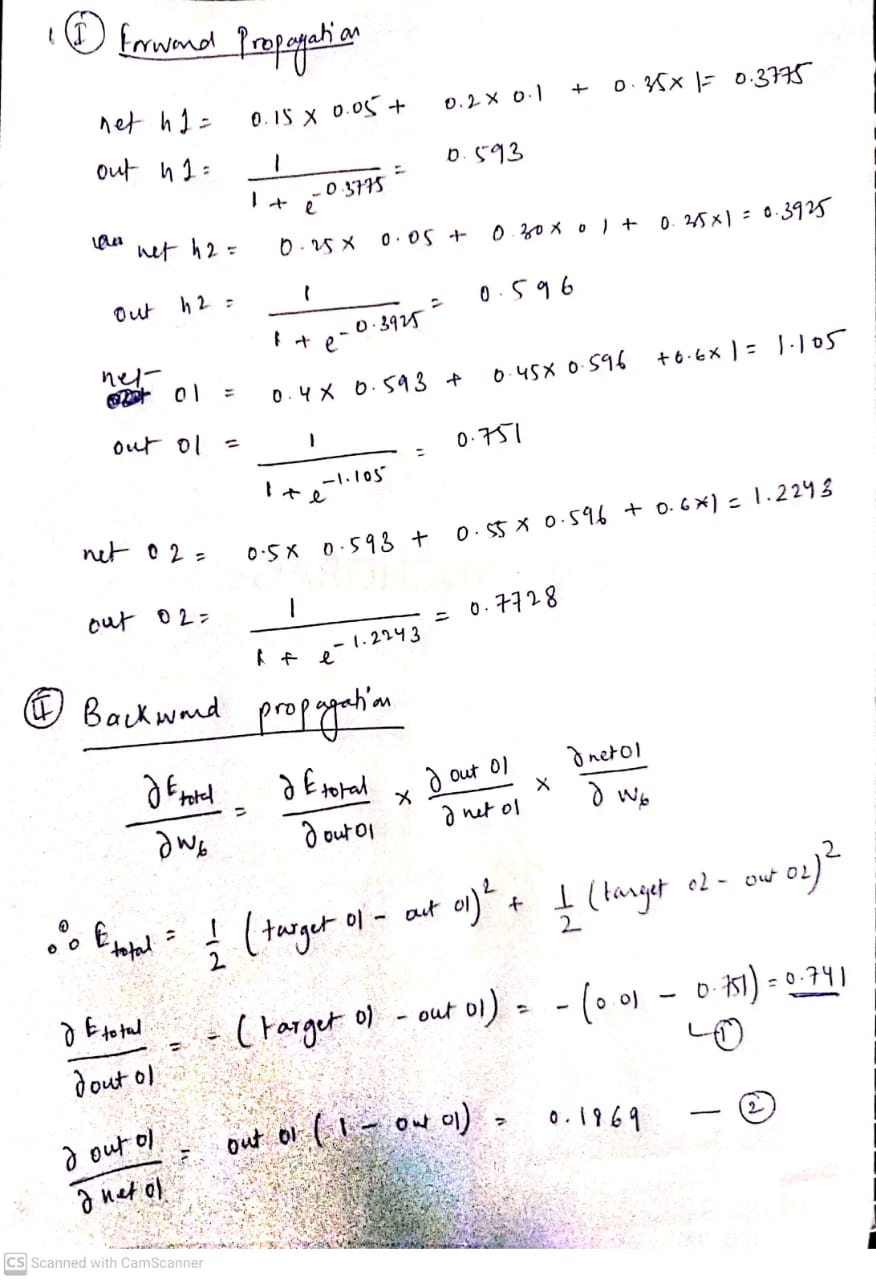 1 (I) Forward Propagation
net h1 = 0.15 x 0.05 + 0.2 x 0.1 + 0.35 x 1 = 0.3775
out h1 = 1 / (1 + e^-0.3775) = 0.593
net h2 = 0.25 x 0.05 + 0.30 x 0.1 + 0.35 x 1 = 0.3925
out h2 = 1 / (1 + e^-0.3925) = 0.596
net o1 = 0.4 x 0.593 + 0.45 x 0.596 + 0.6 x 1 = 1.105
out o1 = 1 / (1 + e^-1.105) = 0.751
net o2 = 0.5 x 0.593 + 0.55 x 0.596 + 0.6 x 1 = 1.2243
out o2 = 1 / (1 + e^-1.2243) = 0.7728
(II) Backward propagation
∂E total / ∂W6 = ∂E total / ∂out o1 x ∂out o1 / ∂net o1 x ∂net o1 / ∂W6
∴ E total = 1/2 (target o1 - out o1)^2 + 1/2 (target o2 - out o2)^2
∂E total / ∂out o1 = - (target o1 - out o1) = - (0.01 - 0.751) = 0.741
↳ (1)
∂out o1 / ∂net o1 = out o1 (1 - out o1) = 0.1869 — (2)
CS Scanned with CamScanner